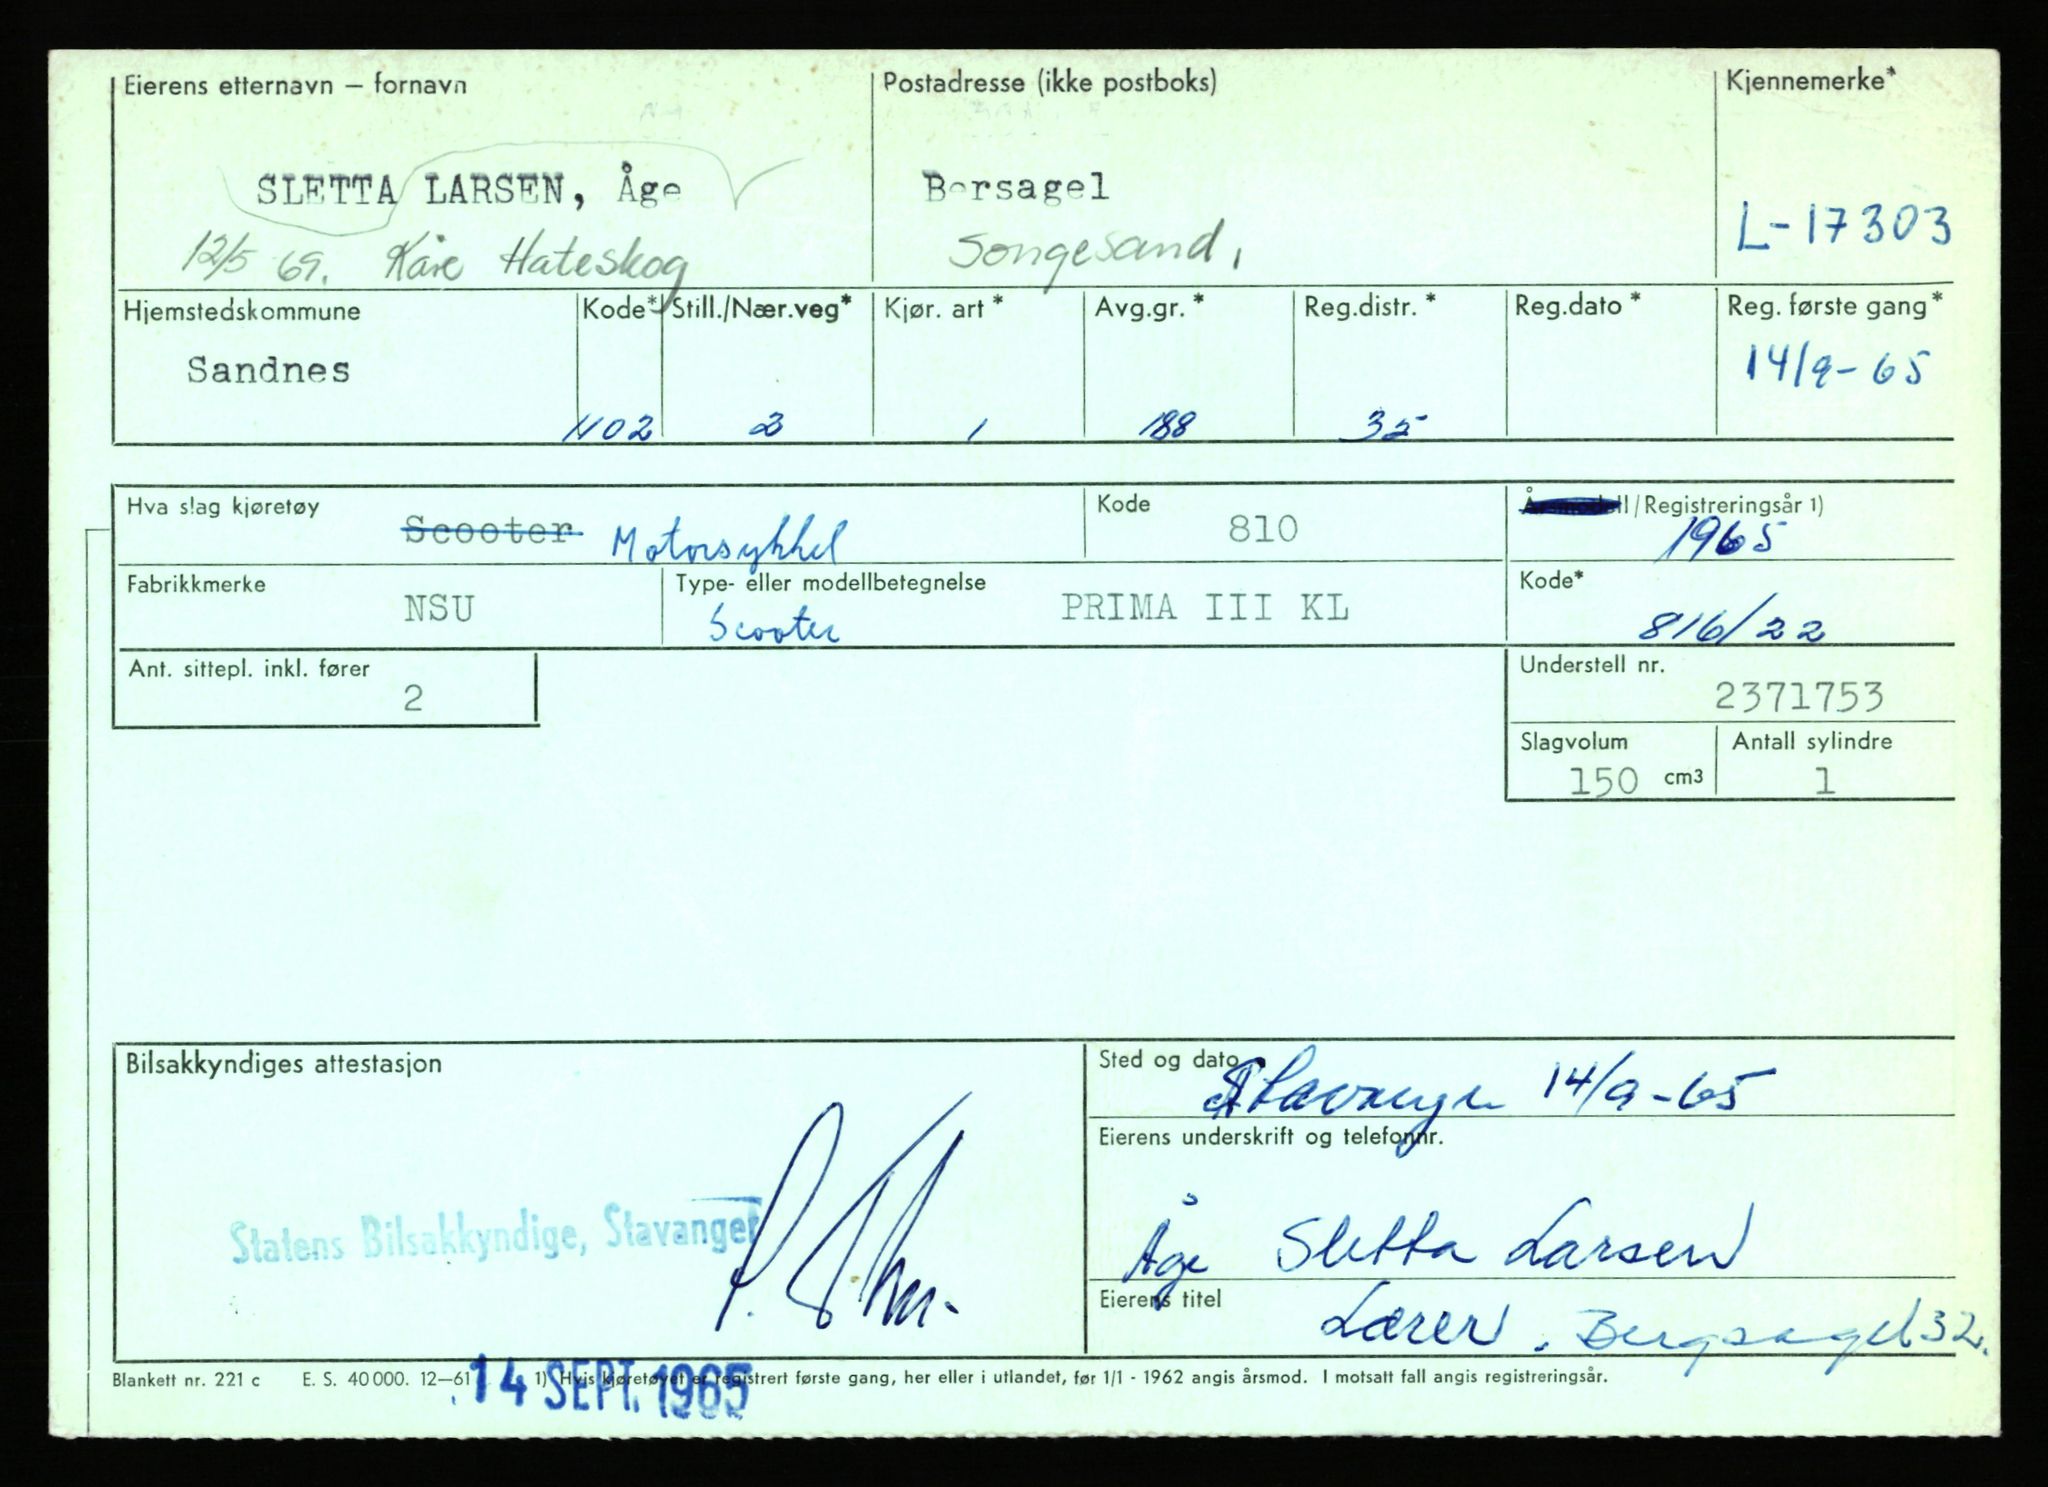 Eierens etternavn – fornavn
Postadresse (ikke postboks)
Kjennemerke*
SLETTA LARSEN, Åge
Bersagel
L-17303
12/5 69. Kåre Hateskog
Songesand,
Hjemstedskommune
Kode*
Still./Nær.veg*
Kjør. art *
Avg.gr. *
Reg.distr. *
Reg.dato *
Reg. første gang*
Sandnes
14/9-65
1102
2
1
188
35
Hva slag kjøretøy
Scooter Motorsykkel
Kode
810
Årsmodell/Registreringsår 1)
1965
Fabrikkmerke
NSU
Type- eller modellbetegnelse
Scooter
PRIMA III KL
Kode*
816/22
Ant. sittepl. inkl. fører
2
Understell nr.
2371753
Slagvolum
150 cm3
Antall sylindre
1
Bilsakkyndiges attestasjon
Statens Bilsakkyndige, Stavanger
Sted og dato
Stavanger 14/9-65
Eierens underskrift og telefonnr.
Åge Sletta Larsen
Eierens titel
Lærer. Bergsagel 32.
Blankett nr. 221 c E. S. 40 000. 12—61
14 SEPT. 1965
1) Hvis kjøretøyet er registrert første gang, her eller i utlandet, før 1/1 - 1962 angis årsmod. I motsatt fall angis registreringsår.